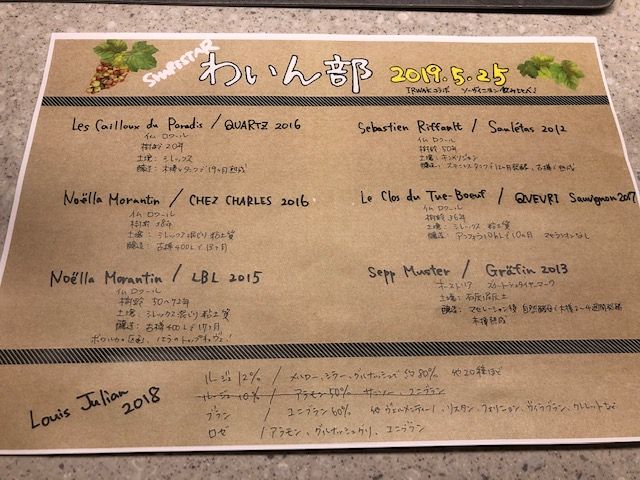 SHARESTAR
わいん部 2019.5.25
Les Cailloux du Paradis / QUARTZ 2016
仏 ロワール
樹齢 20年
土壌: シレックス
醸造: 木樽タンクで19ヶ月熟成
Noëlla Morantin / CHEZ CHARLES 2016
仏 ロワール
樹齢 38年
土壌: シレックス混じり粘土質
醸造: 古樽400Lで15ヶ月
Noëlla Morantin / LBL 2015
仏 ロワール
樹齢 30〜72年
土壌: シレックス混じり粘土質
醸造: 古樽400Lで17ヶ月
Sebastien Riffault / Saulétas 2012
仏 ロワール
樹齢 50年
土壌: キンメリジャン
Le Clos du Tue-Boeuf / QVEVRI Sauvignon 2017
仏 ロワール
樹齢 36年
土壌: シレックス 粘土質
醸造: アンフォラ
Sepp Muster / Gräfin 2013
オーストリア
土壌: 石灰泥灰土
醸造: マセレーション後 自然酵母で木樽2〜4週間発酵
木樽熟成
Louis Julian 2018
ルージュ 12% / メルロー、シラー、グルナッシュで約80% 他20種ほど
ルージュ 10% / アラモン50% サンソー、ユニブラン
ブラン / ユニブラン60% 他 ヴェルメンティーノ、リスタン、
ロゼ / アラモン、グルナッシュグリ、ユニブラン